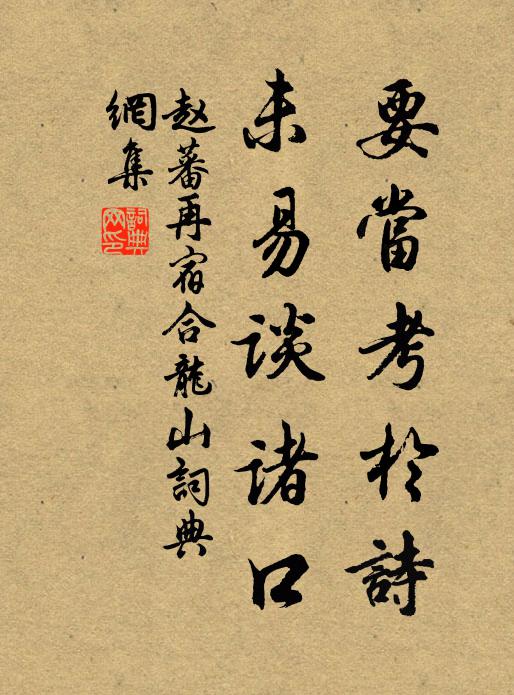 要當考於詩
未易談諸口
赵蕃再宿合龍山詞典
網集
詞典
网印